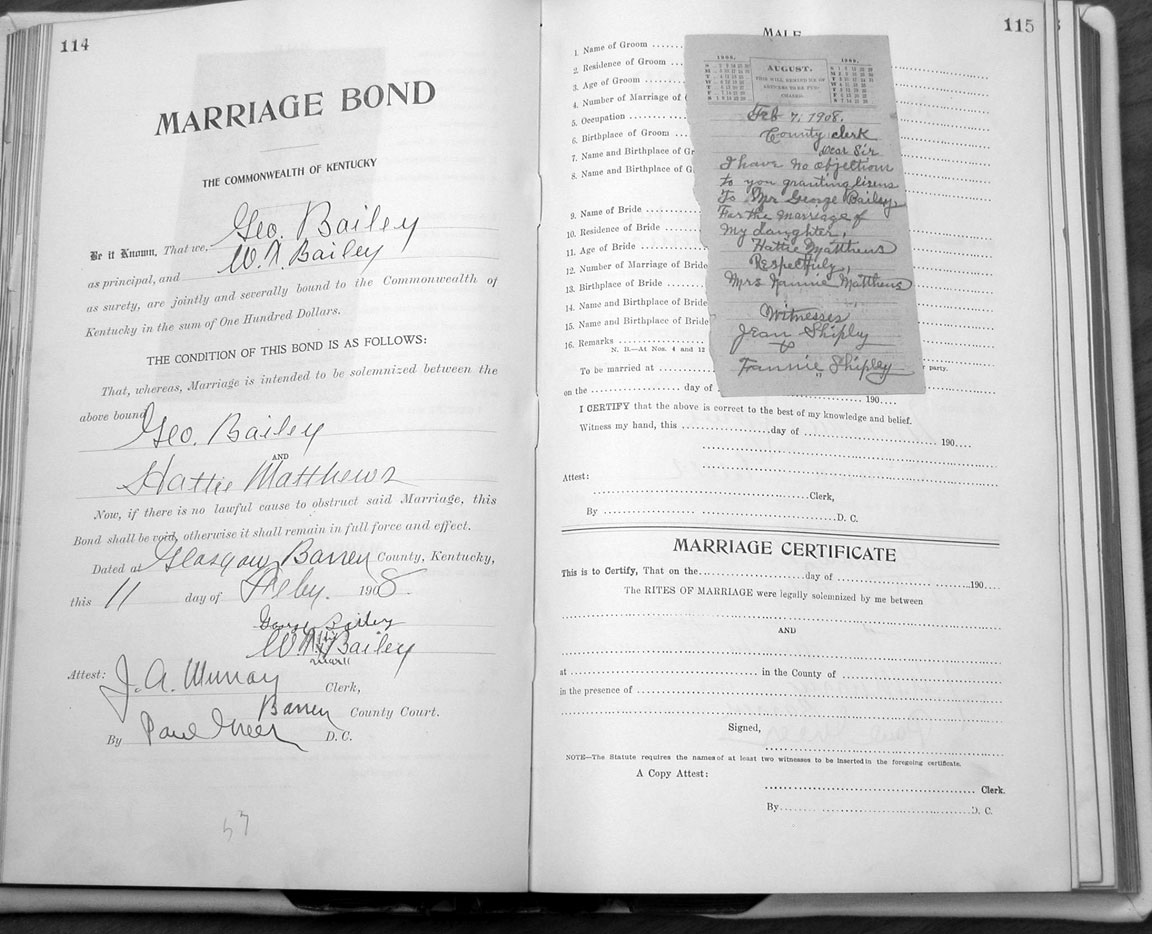 114
MARRIAGE BOND
THE COMMONWEALTH OF KENTUCKY
Be it Known, That we, Geo. Bailey
as principal, and W. T. Bailey
as surety, are jointly and severally bound to the Commonwealth of
Kentucky in the sum of One Hundred Dollars.
THE CONDITION OF THIS BOND IS AS FOLLOWS:
That, whereas, Marriage is intended to be solemnized between the
above bound
Geo. Bailey
AND
Hattie Matthews
Now, if there is no lawful cause to obstruct said Marriage, this
Bond shall be void, otherwise it shall remain in full force and effect.
Dated at Glasgow, Barren County, Kentucky,
this 11 day of Feby. 1908
George Bailey
Bailey
Attest: J. A. Murray Clerk,
Barren County Court.
By Paul Greer D. C.
57
115
MALE
1. Name of Groom
2. Residence of Groom
3. Age of Groom
4. Number of Marriage of
5. Occupation
6. Birthplace of Groom
7. Name and Birthplace of Gr
8. Name and Birthplace of G
9. Name of Bride
10. Residence of Bride
11. Age of Bride
12. Number of Marriage of Bride
13. Birthplace of Bride
14. Name and Birthplace of Bride
15. Name and Birthplace of Bride
16. Remarks
N. B.—At Nos. 4 and 12
To be married at
party.
on the day of 190
I CERTIFY that the above is correct to the best of my knowledge and belief.
Witness my hand, this day of 190
Attest:
Clerk,
By D. C.
1908. AUGUST. 1908.
THIS WILL REMIND ME OF
Feb 7, 1908.
County clerk
Dear Sir
I have no objections
to you granting lisens
To Mr George Bailey,
For the marriage of
My daughter,
Hattie Matthews
Respectfuly,
Mrs Nannie Matthews
Witnesses
Jean Shiply
&
Frannie Shipley
MARRIAGE CERTIFICATE
This is to Certify, That on the day of 190
The RITES OF MARRIAGE were legally solemnized by me between
AND
at in the County of
in the presence of
Signed,
NOTE—The Statute requires the names of at least two witnesses to be inserted in the foregoing certificate.
A Copy Attest:
Clerk.
By D. C.